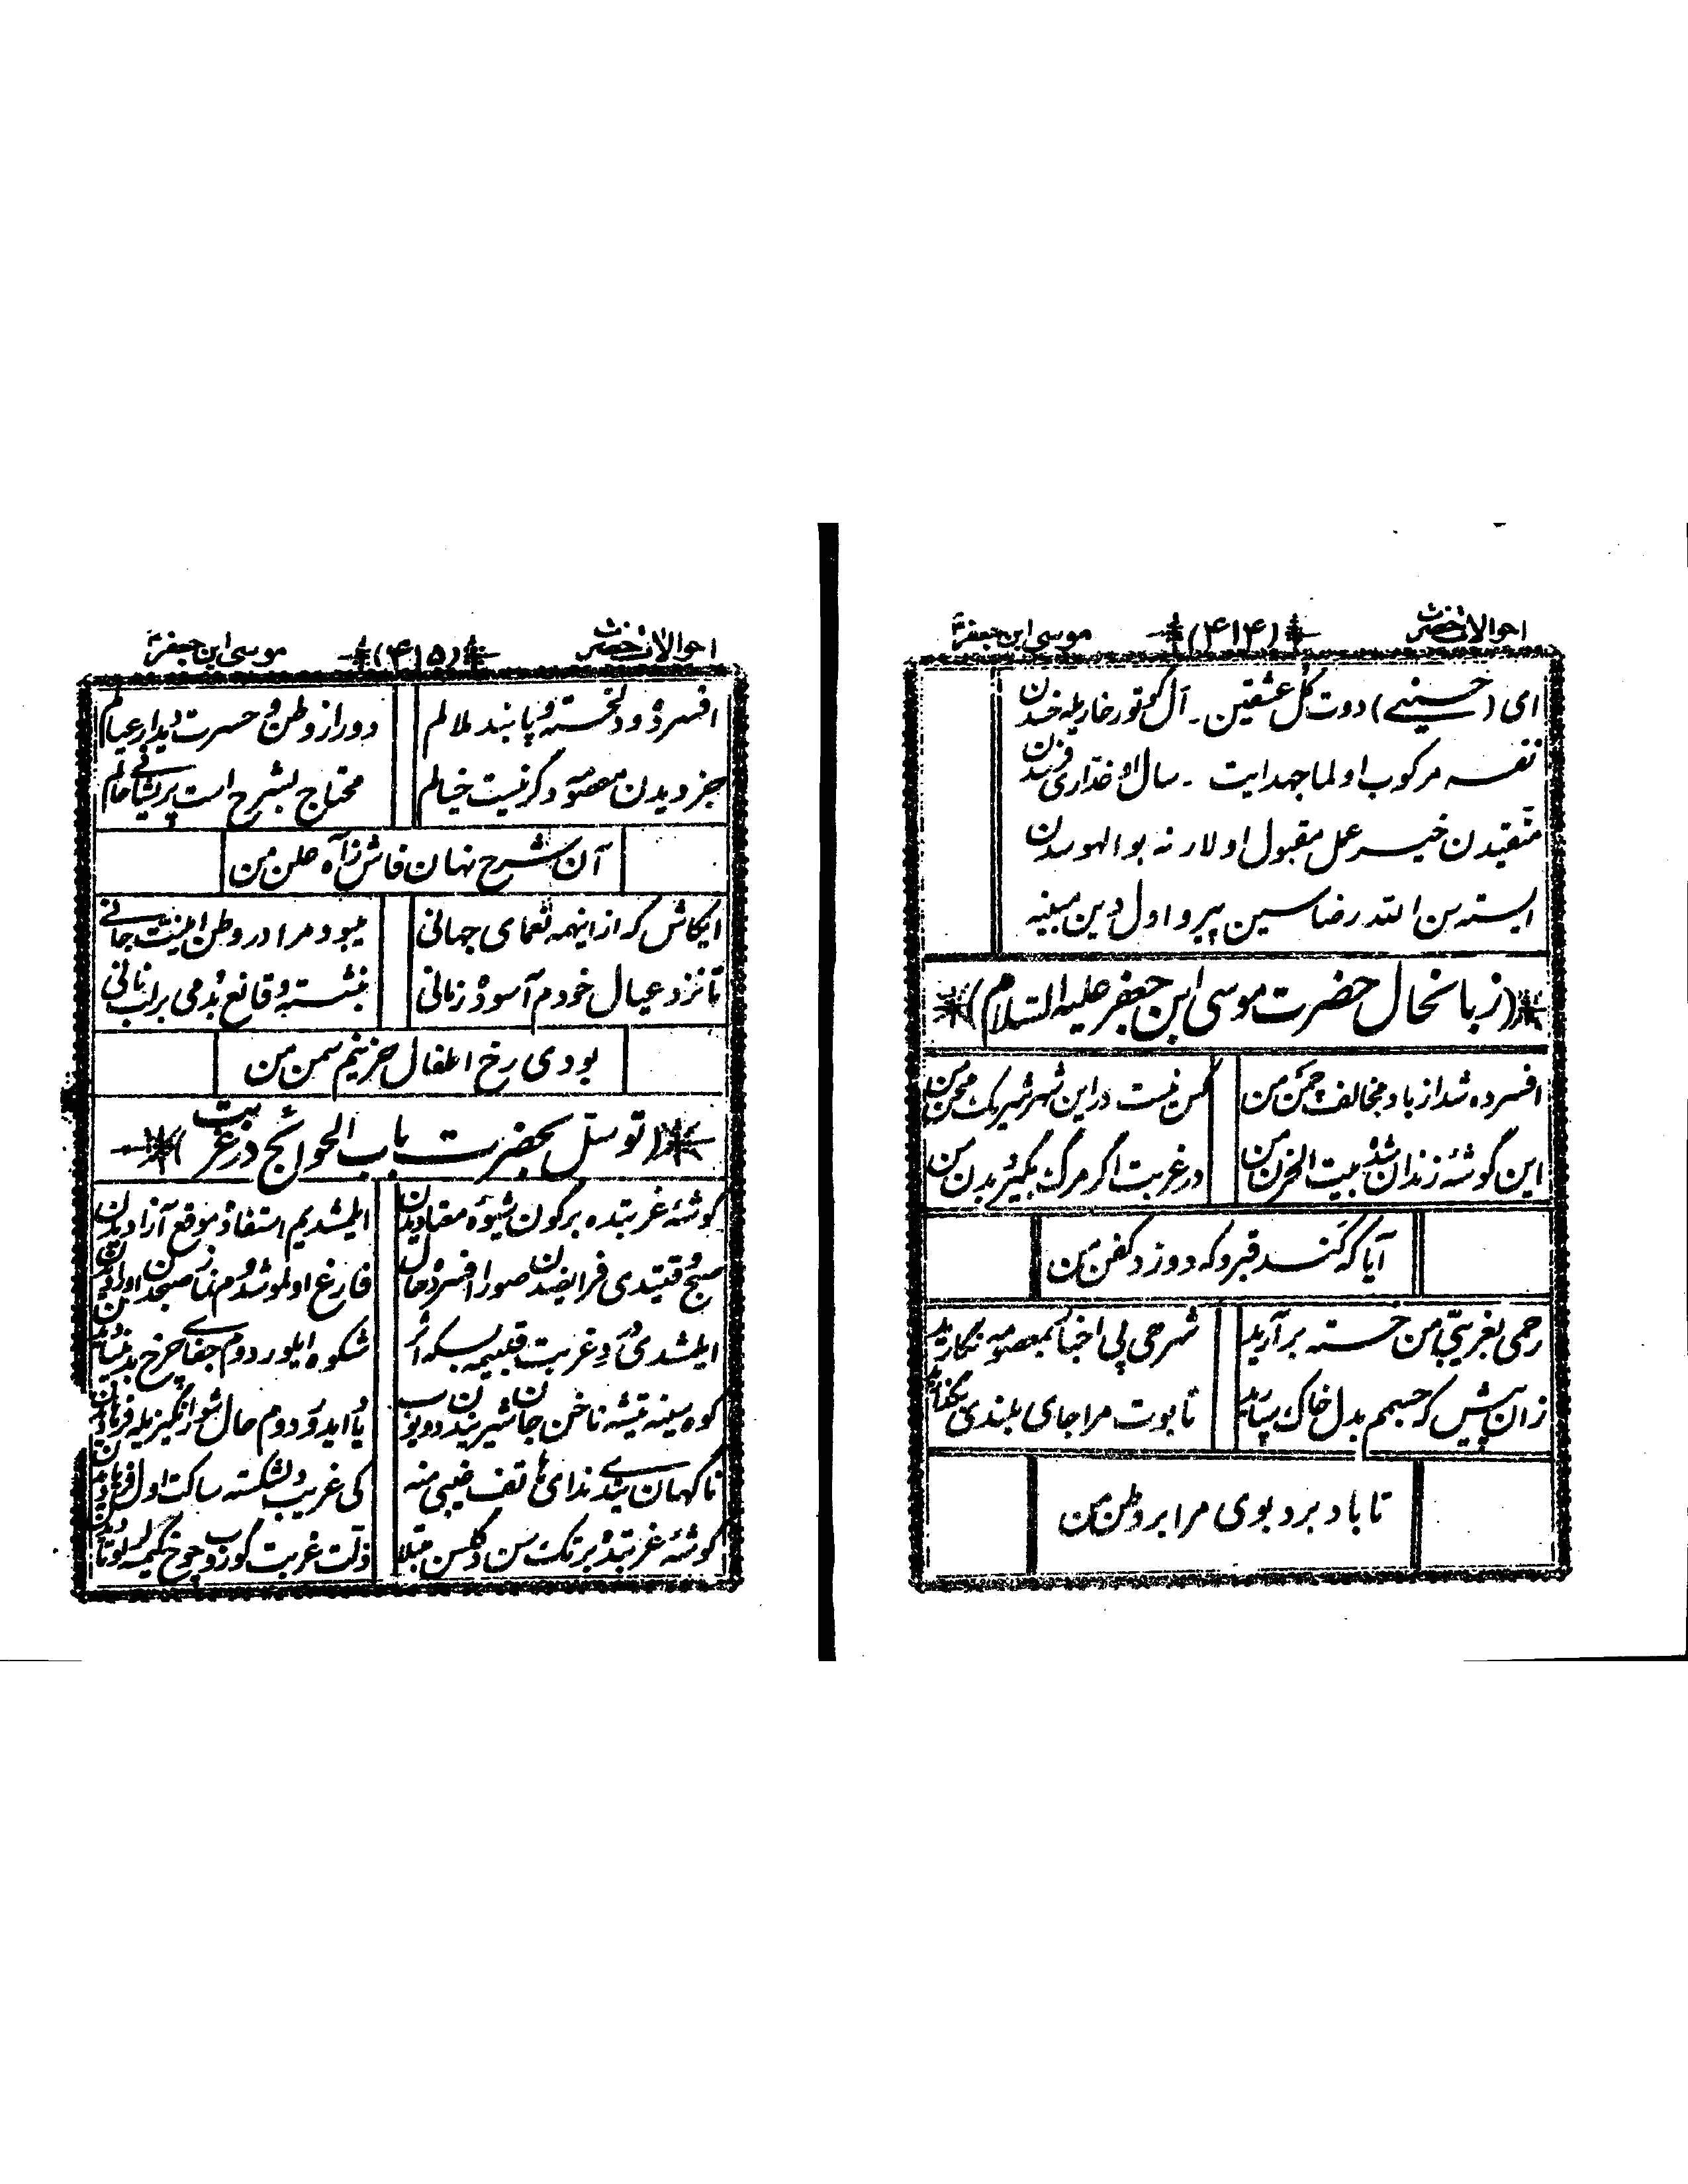 احوالات حضرت (۴۱۴) موسی ابن جعفر
ای (حسینی) دوت گل عشقین - آل گوتور خاریله خسدن
نفسه مرکوب اولما جهد ایت - سال او غدّاری فرسدن
متّقیدن خیر عمل مقبول اولار نه بوالهوسدن
ایسته سن الله رضاسین پیرو اول دین مبینه
(زبانحال حضرت موسی ابن جعفر علیه السلام)
افسرده شد از باد مخالف چمن من
کس نیست در این شهر شریک محن من
این گوشهٔ زندان شده بیت الحزن من
در غربت اگر مرگ بگیرد بدن من
آیا که کَند قبر و که دوزد کفن من
رحمی بغریبیّ من خسته بر آرید
شرحی پی اخبا بمعصومه نگارید
زان پیش که جسمم بدل خاک سپارید
تابوت مرا جای بلندی بگذارید
تا باد برد بوی مرا بر وطن من
احوالات حضرت (۴۱۵) موسی ابن جعفر
افسرده و دلخسته و پابند ملالم
دور از وطن و حسرت دیدار عیالم
جز دیدن معصومه دگر نیست خیالم
محتاج بشرح است پریشانی حالم
آن شرح نهان فاش ز آه علن من
ایکاش که از اینهمه نعمای جهانی
میبود مرا در وطن امنیت جانی
تا نزد عیال خودم آسوده زمانی
بنشسته و قانع بُدمی بر لب نانی
بودی رخ اطفال حزینم سمن من
(توسّل بحضرت باب الحوائج در غربت)
گوشهٔ غربتده بر گون شیوهٔ معتادیدن
ایلمشدیم استفاده موقع آزادیدن
صبح وقتیدی فرایضدن صورا افسرده حال
فارغ اولموشدوم نماز صبحدن اورادیدن
ایلمشدی درد غربت قلبیمه بسکه اثر
شکوه ایلوردوم جفای چرخ بد بنیادیدن
کوه سینه تیشه ناخن جان شیریندن دویوب
ناگهان یتدی ندای هاتف غیبی منه
کی غریب دلشکسته ساکت اول فریادیدن
گوشهٔ غربتده بر تک سن دگلسن مبتلا
ذلّت غربت گوروب چوخ کیمسه لر